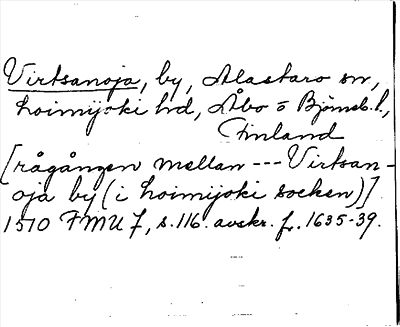 Virtsanoja, by, Alastaro sn,
Loimijoki hd, Åbo o Björneb. l.,
Finland
[rågången mellan --- Virtsan-
oja by (i Loimijoki socken)]
1510 FMU 7, s. 116. avskr. fr. 1635-39.